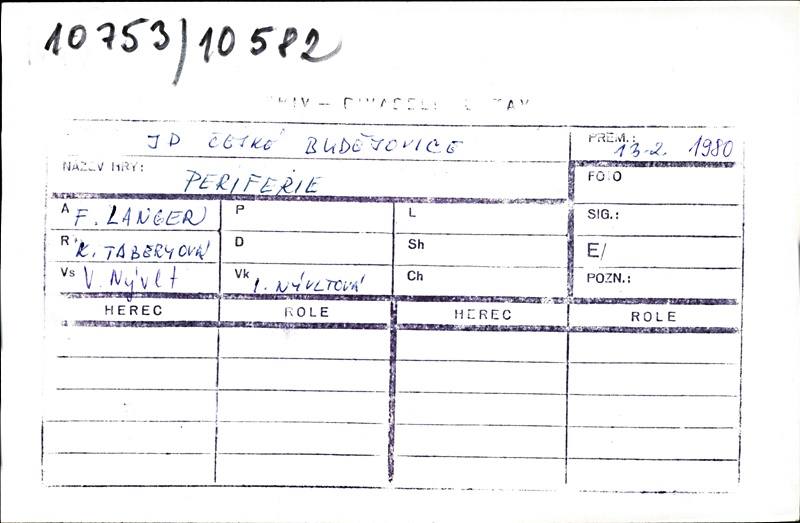 10753/10582
JD ČESKÉ BUDĚJOVICE
PREM.: 13.2. 1980
NÁZEV HRY: PERIFERIE
FOTO
A F. LANGER
P
L
SIG.:
R K. TABERYOVÁ
D
Sh
E/
Vs V. Nývlt
Vk I. NÝVLTOVÁ
Ch
POZN.:
HEREC ROLE HEREC ROLE